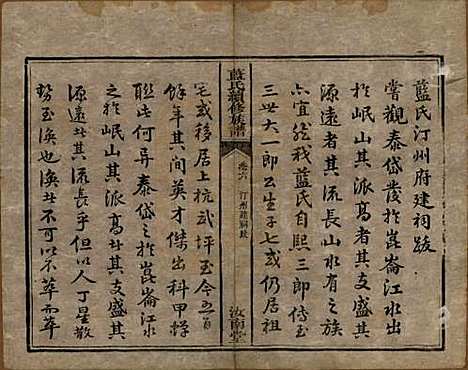 藍氏汀州府建祠跋
嘗觀泰岱發於崑崙江水出
於岷山其派高者其支盛其
源遠者其流長山水有之族
亦宜然我藍氏自熙三郎傳至
三世大一郎公生子七或仍居祖
藍氏續修族譜
卷六
汀州建祠跋
汝南堂
宅或移居上杭武坪至今五百
餘年其間英才傑出科甲蟬
聯此何異泰岱之於崑崙江水
之於岷山其派高者其支盛其
源遠者其流長乎但以人丁星散
勢至渙也渙者不可以不萃而萃